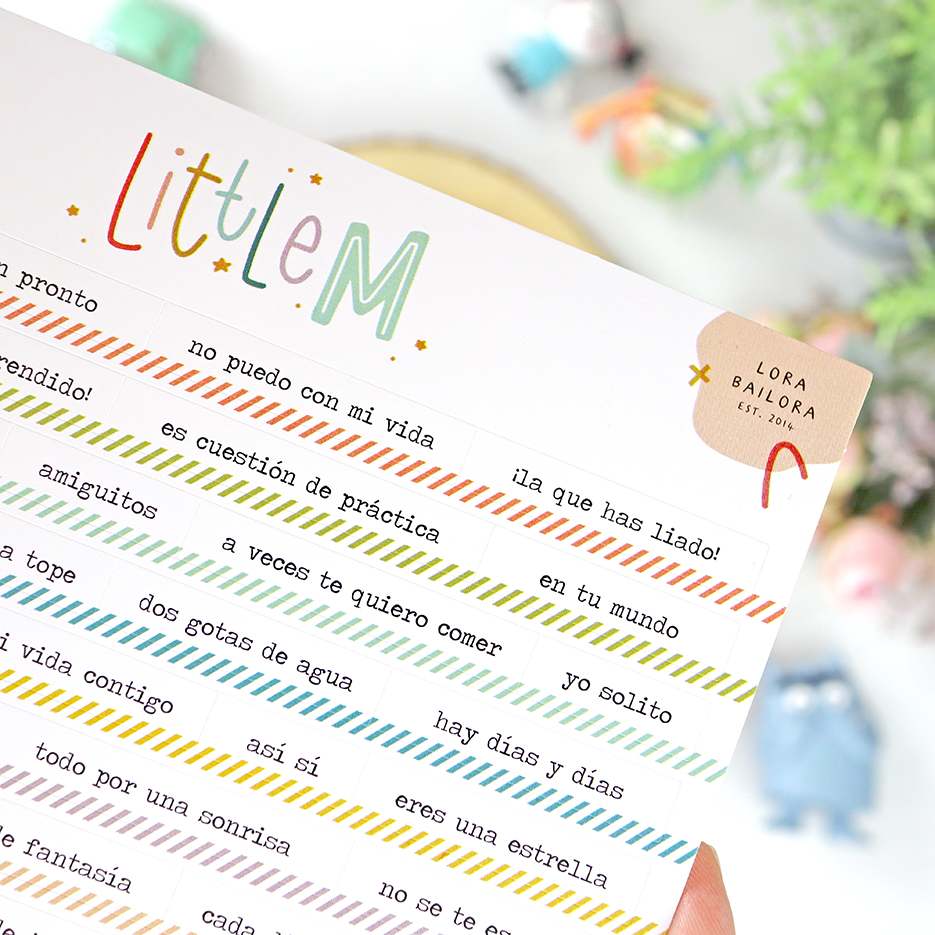 LittleM
LORA
BAILORA
EST. 2014
pronto no puedo con mi vida ¡la que has liado!
es cuestión de práctica en tu mundo
amiguitos a veces te quiero comer yo solito
a tope dos gotas de agua hay días y días
vida contigo así sí eres una estrella
todo por una sonrisa no se te
fantasía cada